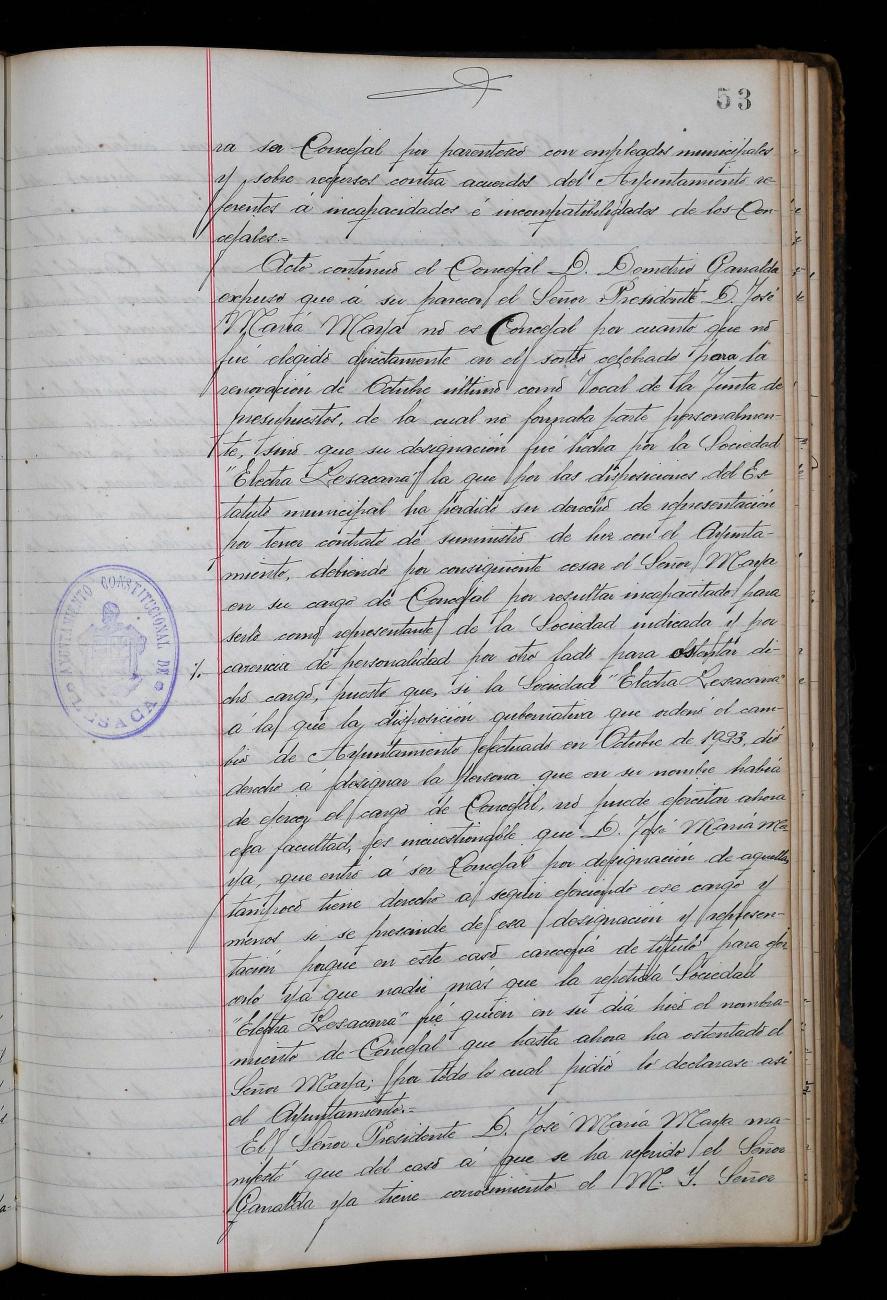 53
ra ser Concejal por parentesco con empleados municipales
y sobre recursos contra acuerdos del Ayuntamiento re-
ferentes á incapacidades é incompatibilidades de los Con-
cejales.=
Acto continuo el Concejal D. Demetrio Garralda
expuso que á su parecer el Señor Presidente D. José
María Marfa no es Concejal por cuanto que no
fué elegido directamente en el sorteo celebrado para la
renovación de Octubre último como Vocal de la Junta de
presupuestos, de la cual no formaba parte personalmen-
te, sino que su designación fué hecha por la Sociedad
"Electra Lesacana" la que por las disposiciones del Es-
tatuto municipal ha perdido su derecho de representación
por tener contrato de suministro de luz con el Ayunta-
miento, debiendo por consiguiente cesar el Señor Maya
en su cargo de Concejal por resultar incapacitado para
serlo como representante de la Sociedad indicada y por
carencia de personalidad por otro lado para ostentar di-
cho cargo, puesto que, si la Sociedad "Electra Lesacana"
á la que la disposición gubernativa que ordenó el cam-
bio de Ayuntamiento efectuado en Octubre de 1923, dió
derecho á designar la persona que en su nombre había
de ejercer el cargo de Concejal, no puede ejercitar ahora
esa facultad, es incuestionable que D. José María Ma
ya, que entró á ser Concejal por designación de aquella,
tampoco tiene derecho a seguir ejerciendo ese cargo y
menos, si se prescinde de esa designación y represen-
tación porque en este caso carecería de título para ejer
cerlo ya que nadie más que la repetida Sociedad
"Electra Lesacana" fué quien en su día hizo el nombra-
miento de Concejal que hasta ahora ha ostentado el
Señor Maya; por todo lo cual pidió lo declarase así
el Ayuntamiento.=
El Señor Presidente D. José María Maya ma-
nifestó que del caso á que se ha referido el Señor
Garralda ya tiene conocimiento el M. I. Señor
AYUNTAMIENTO CONSTITUCIONAL DE LESACA